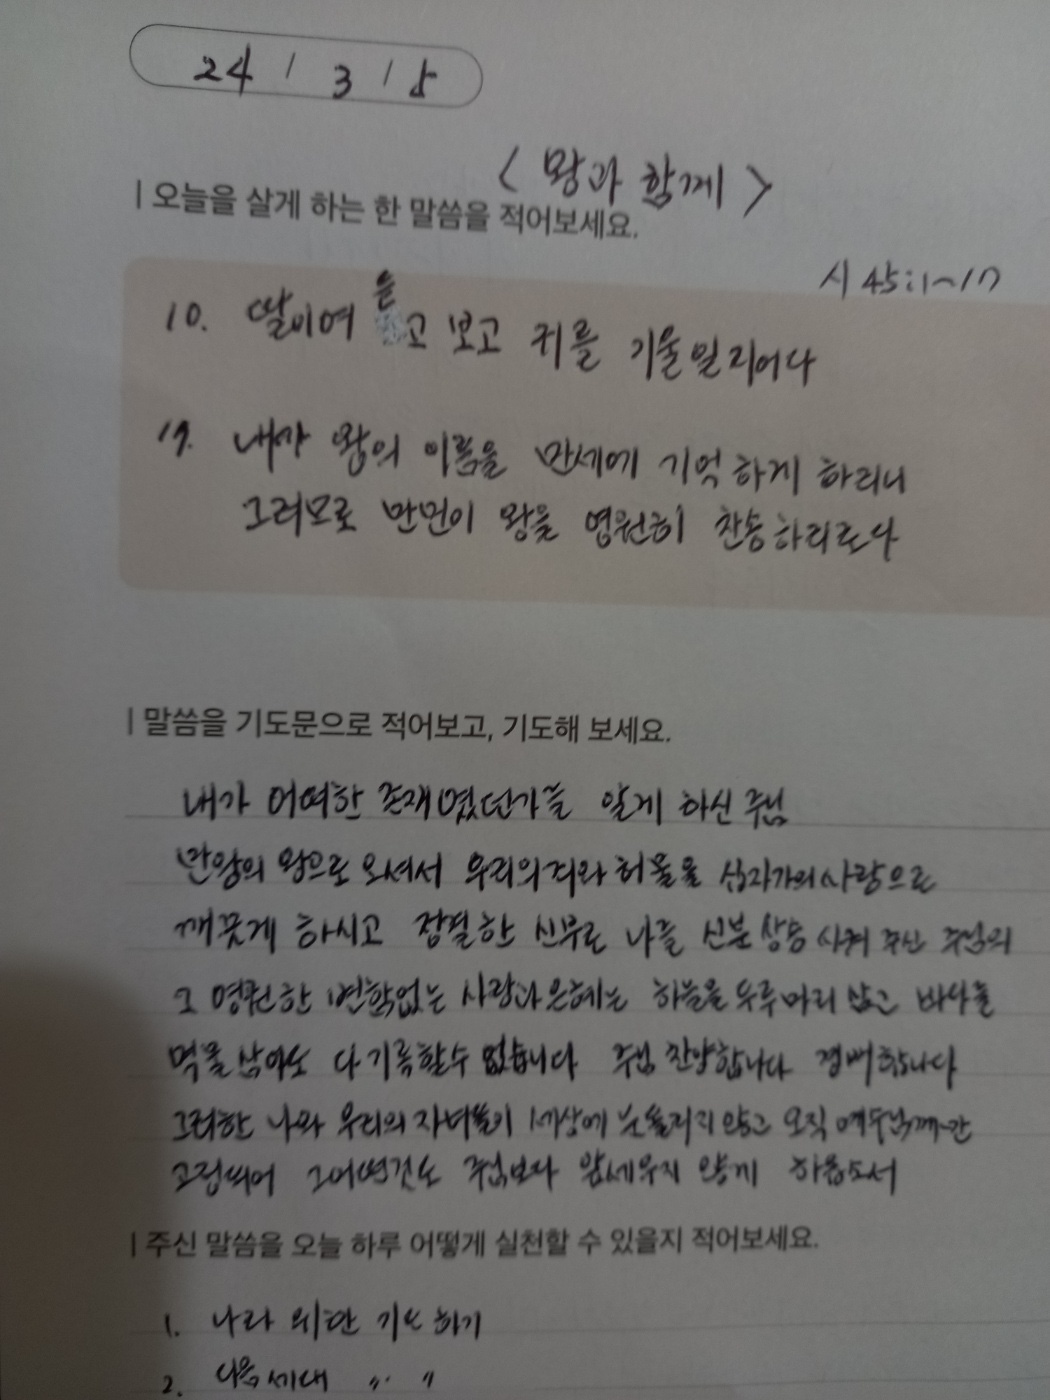 24 / 3 / 5
< 왕과 함께 >
| 오늘을 살게 하는 한 말씀을 적어보세요.
시 45:1~17
10. 딸이여 듣고 보고 귀를 기울일지어다
17. 내가 왕의 이름을 만세에 기억하게 하리니
그러므로 만민이 왕을 영원히 찬송하리로다
| 말씀을 기도문으로 적어보고, 기도해 보세요.
내가 어떠한 존재였던가를 알게 하신 주님
만왕의 왕으로 오셔서 우리의 죄와 허물을 십자가의 사랑으로
깨끗게 하시고 정결한 신부로 나를 신분 상승 시켜 주신 주님의
그 영원한 변함없는 사랑과 은혜는 하늘을 두루마리 삼고 바다를
먹물 삼아도 다 기록할수 없습니다 주님 찬양합니다 경배합니다
그러한 나와 우리의 자녀들이 세상에 눈돌리지 않고 오직 예수님께만
고정되어 그어떤것도 주님보다 앞세우지 않게 하옵소서
| 주신 말씀을 오늘 하루 어떻게 실천할 수 있을지 적어보세요.
1. 나라 위한 기도 하기
2. 다음 세대 〃 〃